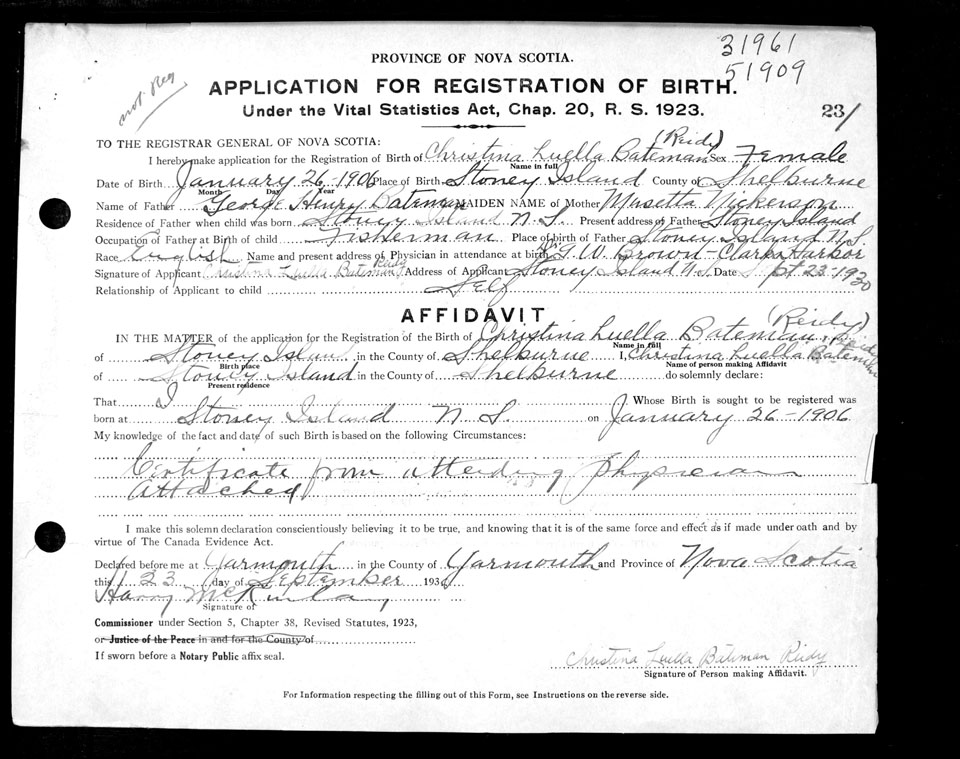 31961
51909
not Reg
PROVINCE OF NOVA SCOTIA.
APPLICATION FOR REGISTRATION OF BIRTH.
Under the Vital Statistics Act, Chap. 20, R. S. 1923.
23/
TO THE REGISTRAR GENERAL OF NOVA SCOTIA:
(Reidy)
I hereby make application for the Registration of Birth of Christina Luella Bateman Sex Female
Name in full
Date of Birth January 26 - 1906 Place of Birth Stoney Island County of Shelburne
Month Day Year
Name of Father George Henry Bateman MAIDEN NAME of Mother Nickerson
Residence of Father when child was born Stoney Island N.S. Present address of Father Stoney Island
Occupation of Father at Birth of child Fisherman Place of birth of Father Stoney Island N.S.
Race English Name and present address of Physician in attendance at birth Dr. G.W. Brown - Clarks Harbor
Signature of Applicant Christina Luella Bateman Reidy Address of Applicant Stoney Island N.S. Date Sept 23-1930
Relationship of Applicant to child Self
AFFIDAVIT
(Reidy)
IN THE MATTER of the application for the Registration of the Birth of Christina Luella Bateman
Name in full
of Stoney Islan in the County of Shelburne I, Christina Luella Bateman Reidy
Birth place Name of person making Affidavit
of Stoney Island in the County of Shelburne do solemnly declare:
Present residence
That I Whose Birth is sought to be registered was
born at Stoney Island N.S. on January 26 - 1906
My knowledge of the fact and date of such Birth is based on the following Circumstances:
Certificate from attending physician
attached
I make this solemn declaration conscientiously believing it to be true, and knowing that it is of the same force and effect as if made under oath and by
virtue of The Canada Evidence Act.
Declared before me at Yarmouth in the County of Yarmouth and Province of Nova Scotia
this 23 day of September 1930
Harry McKinlay
Signature of
Commissioner under Section 5, Chapter 38, Revised Statutes, 1923,
or Justice of the Peace in and for the County of
If sworn before a Notary Public affix seal.
Christina Luella Bateman Reidy
Signature of Person making Affidavit.
For Information respecting the filling out of this Form, see Instructions on the reverse side.